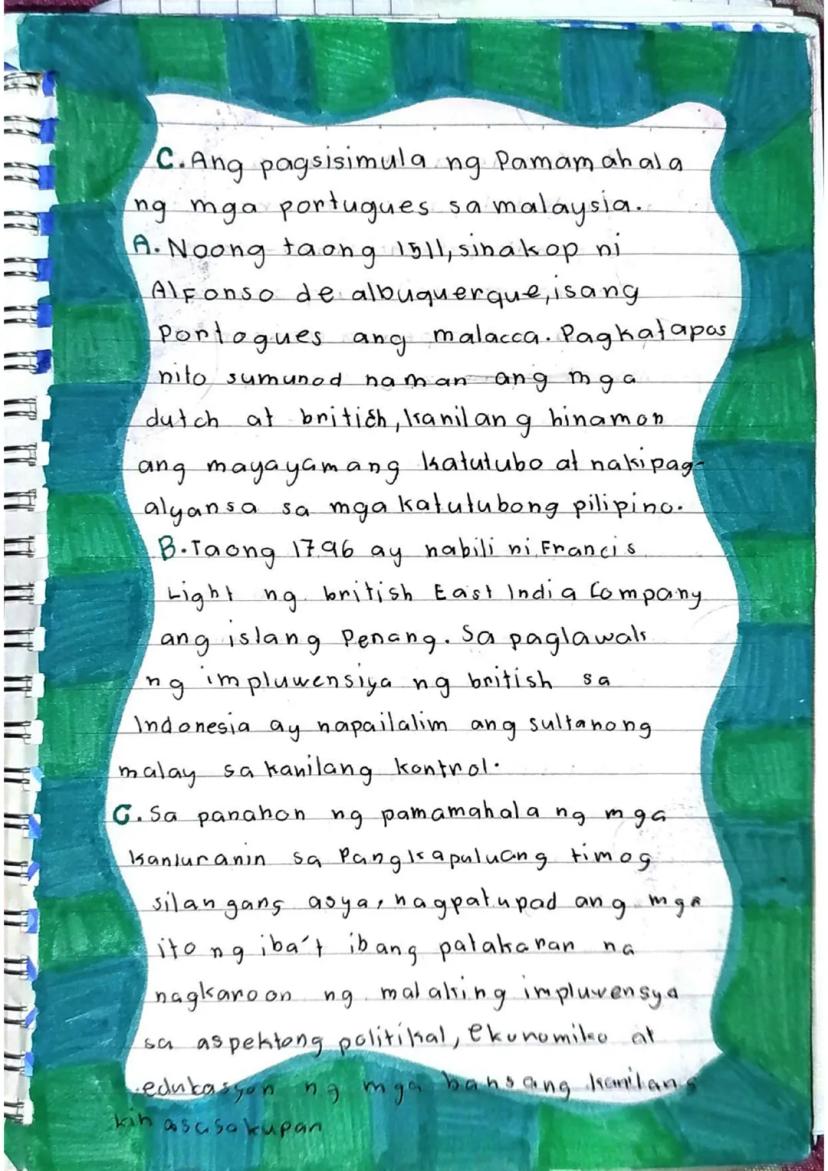 C. Ang pagsisimula ng Pamamahala
ng mga portugues sa malaysia.
A. Noong taong 1511, sinakop ni
Alfonso de albuquerque, isang
Portogues ang malacca. Pagkatapos
nito sumunod naman ang mga
dutch at british, kanilang hinamon
ang mayayamang katutubo at nakipag-
alyansa sa mga katutubong pilipino.
B. Taong 1796 ay nabili ni Francis
Light ng british East India Company
ang islang Penang. Sa paglawak
ng impluwensiya ng british sa
Indonesia ay napailalim ang sultanong
malay sa kanilang kontrol.
C. Sa panahon ng pamamahala ng mga
kanluranin sa Pangkapuluang timog
silangang asya, nagpatupad ang mga
ito ng iba't ibang patakaran na
nagkaroon ng malaking impluvensya
sa aspektong politikal, ekunomiko at
edukasyon ng mga bansang kanilang
kinasasakupan